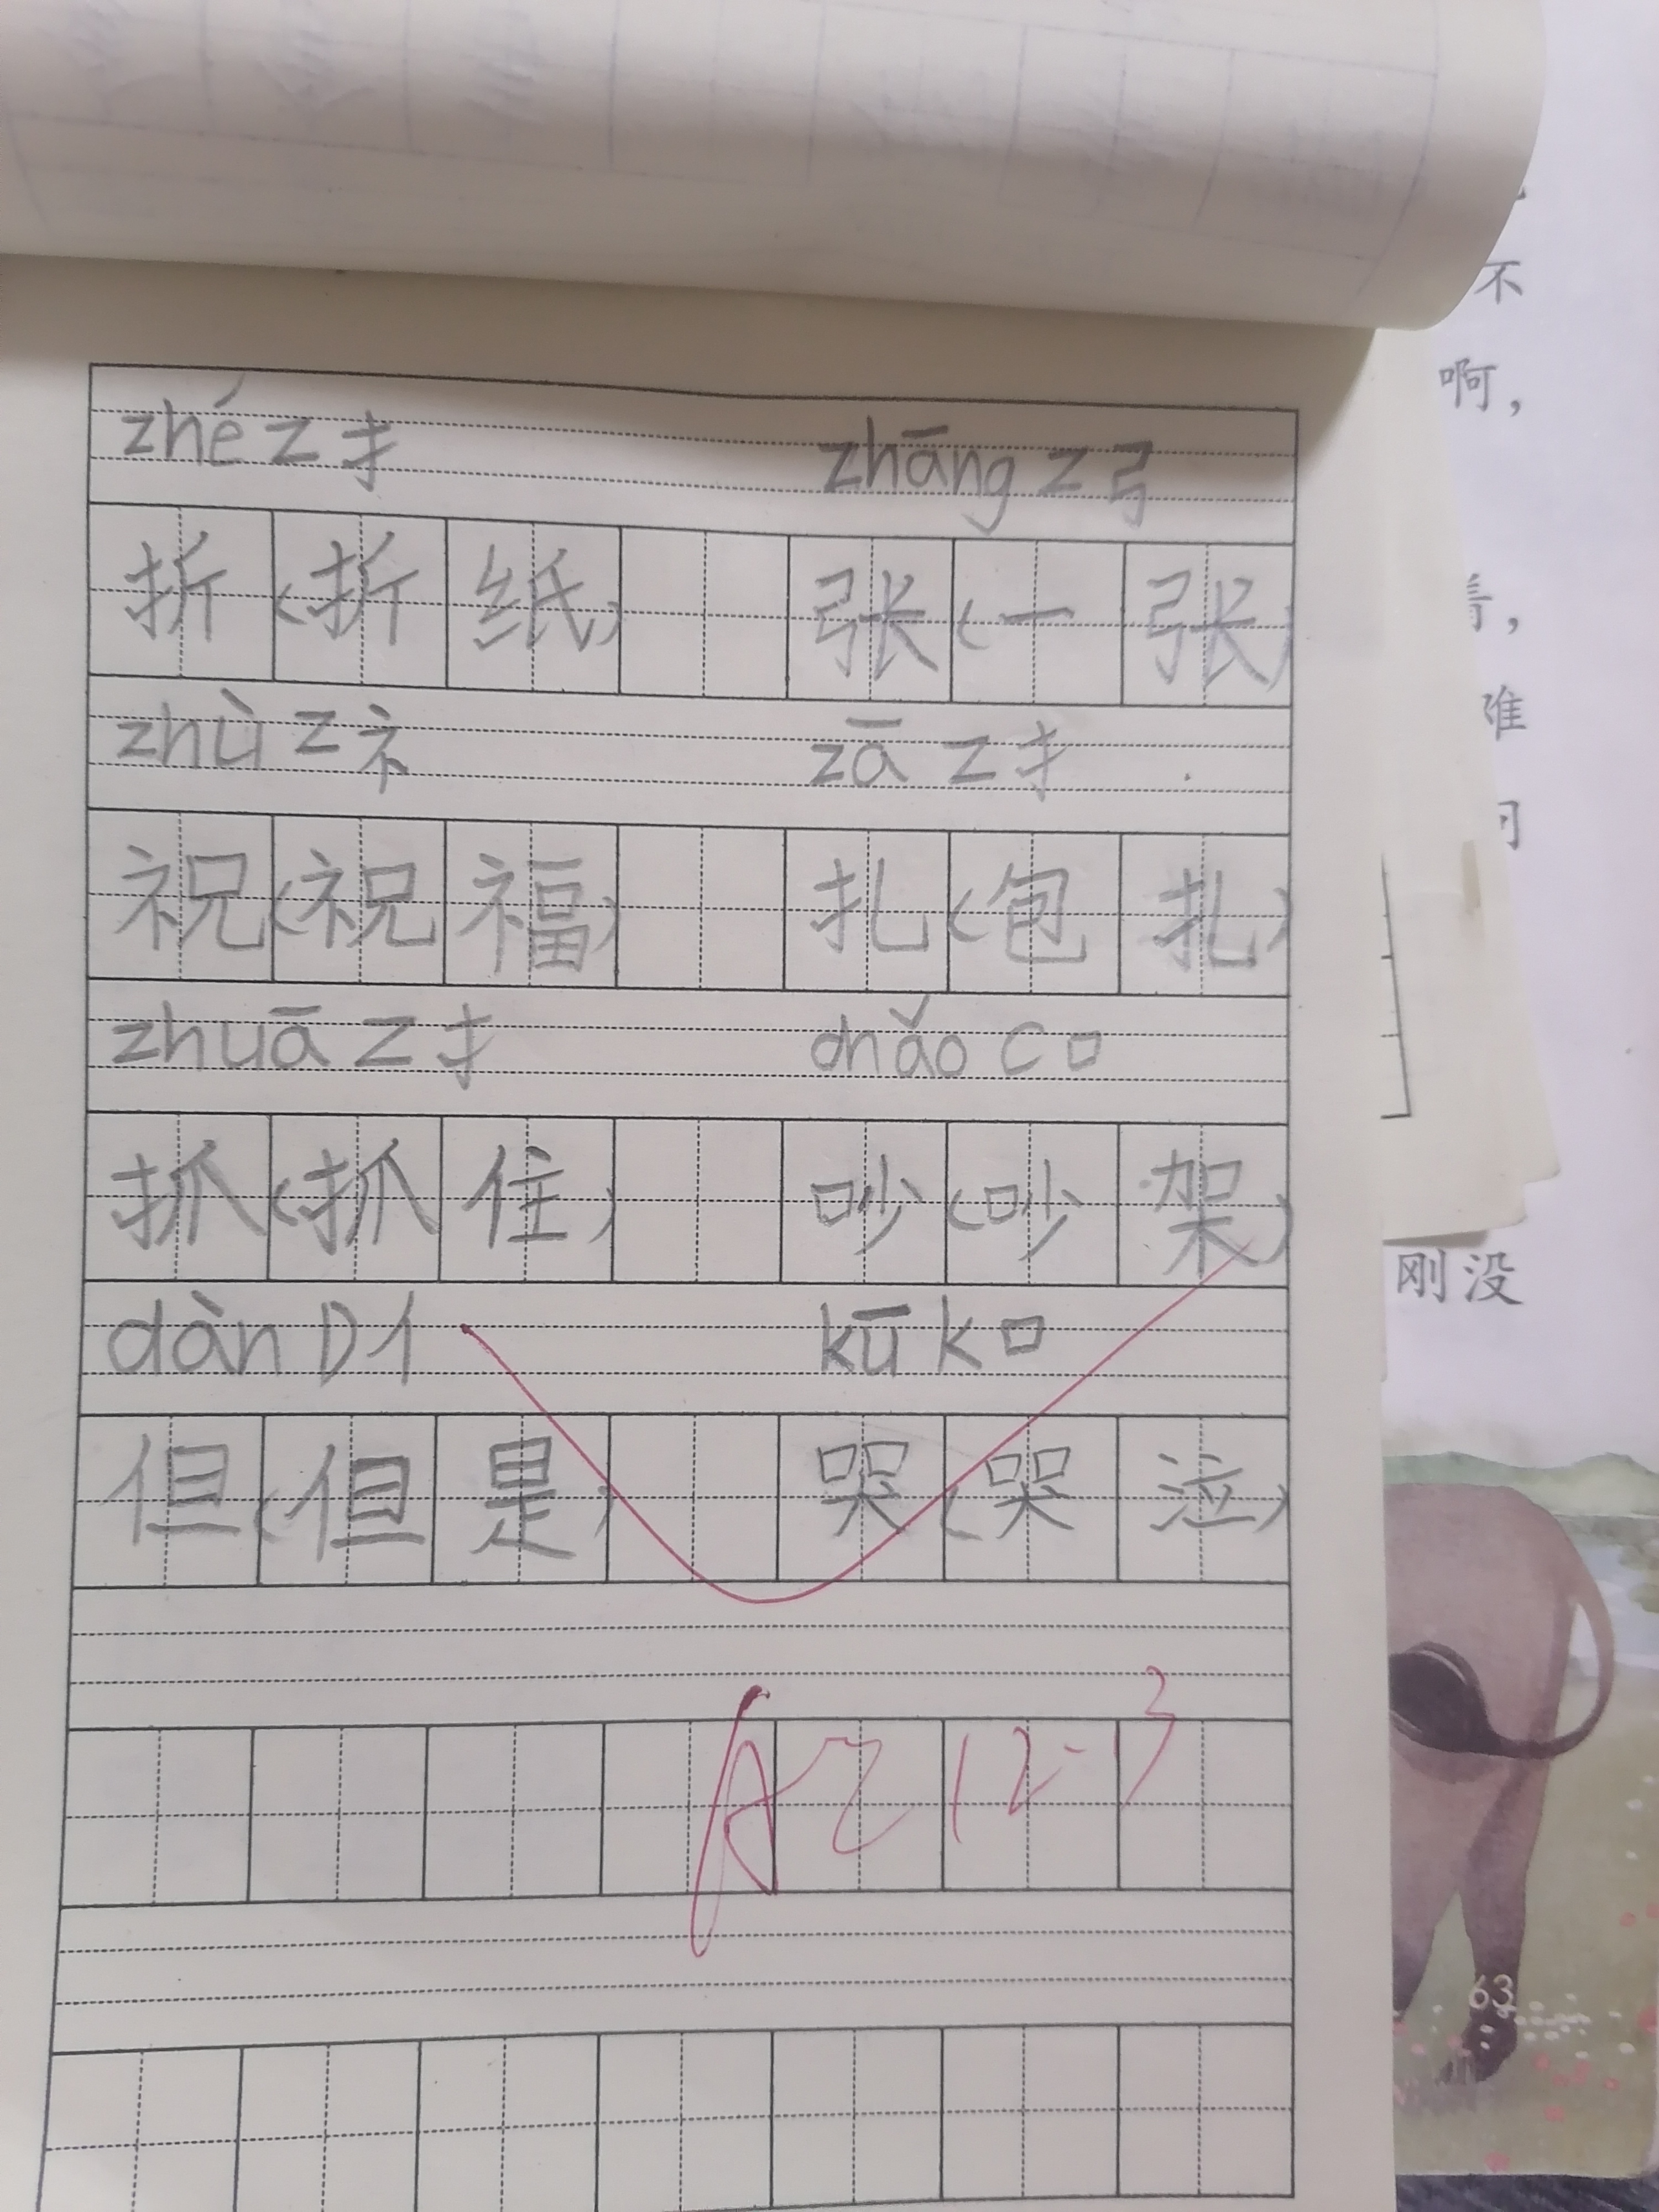 zhé Z扌 zhāng Z弓
折(折纸) 张(一张)
zhù Z礻 zā Z扌
祝(祝福) 扎(包扎)
zhuā Z扌 chǎo C口
抓(抓住) 吵(吵架)
dàn D亻 kū K口
但(但是) 哭(哭泣)
A2 12-3
不
啊，
着，
难
刚没
63